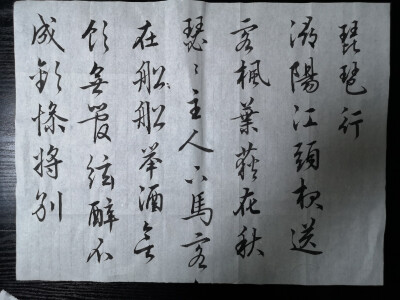 琵琶行
浔陽江頭夜送
客楓葉荻花秋
瑟〻主人下馬客
在船船举酒欲
飲無管絃醉不
成歡慘將別